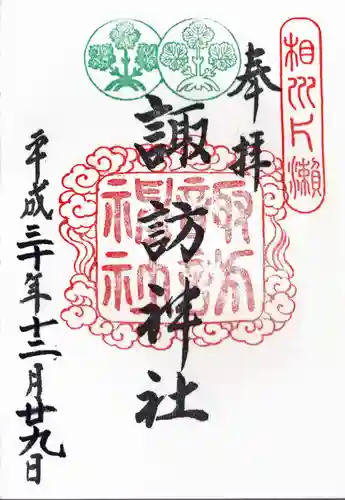 相州片瀬
奉拝
諏訪神社
諏訪
神社
平成三十年十二月廿九日